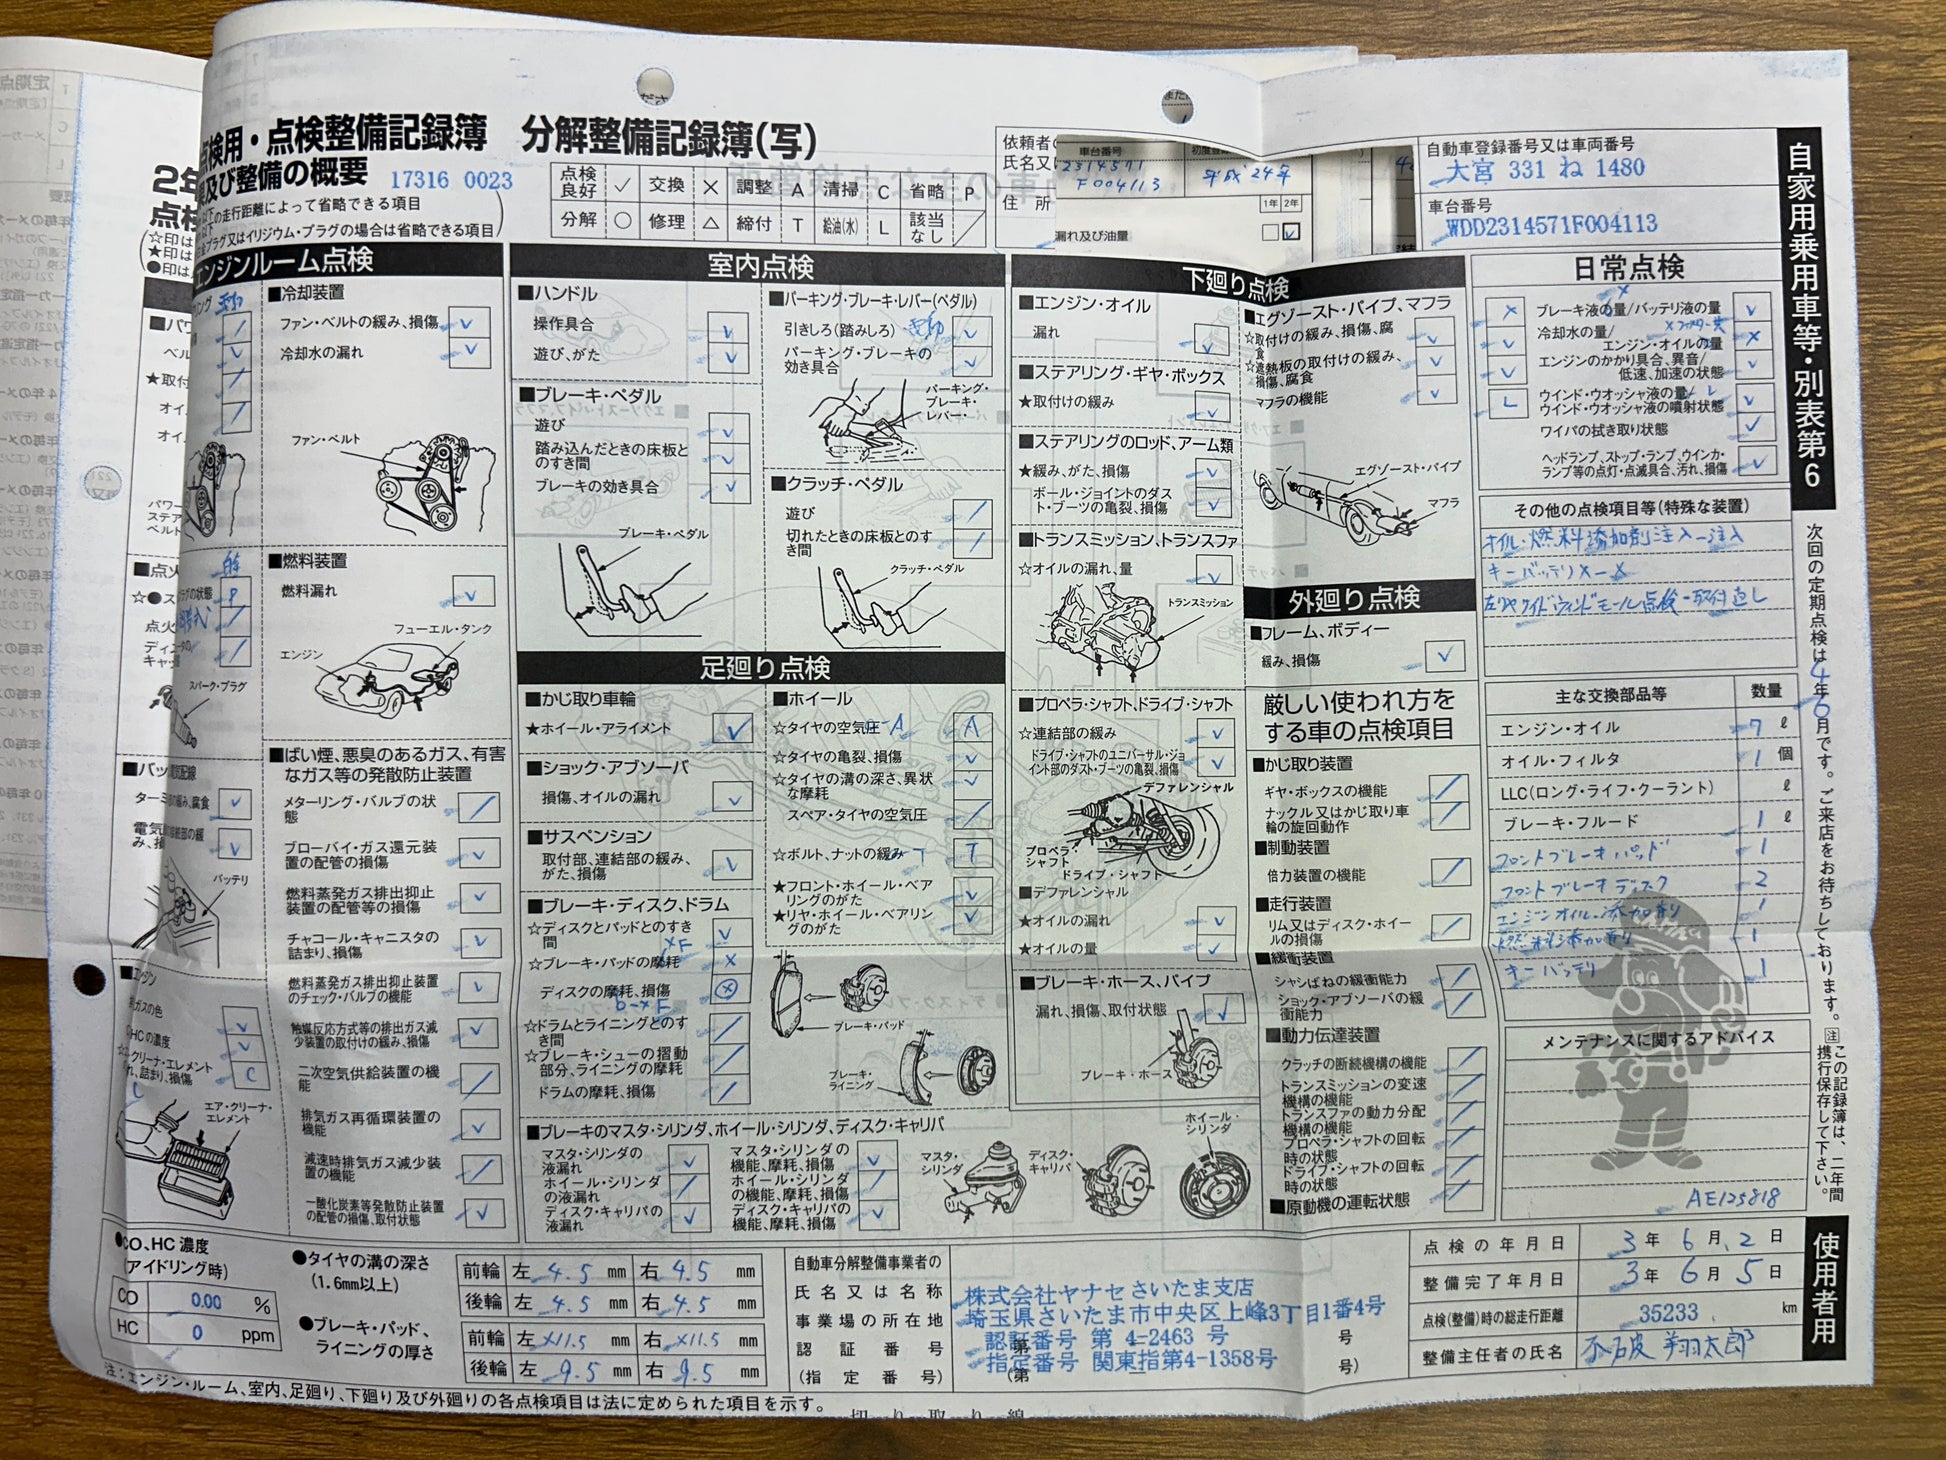 点検用・点検整備記録簿 分解整備記録簿(写)
及び整備の概要 17316 0023
の走行距離によって省略できる項目
プラグ又はイリジウム・プラグの場合は省略できる項目)
点検良好 ✓ 交換 × 調整 A 清掃 C 省略 P
分解 ○ 修理 △ 締付 T 給油(水) L 該当なし ／
依頼者の
氏名又
住所
車台番号
2314571
F004113
平成24年
1年 2年
漏れ及び油量
自動車登録番号又は車両番号
大宮 331 ね 1480
車台番号
WDD2314571F004113
自家用乗用車等・別表第6
エンジンルーム点検
■冷却装置
ファン・ベルトの緩み、損傷 ✓
冷却水の漏れ ✓
ファン・ベルト
■燃料装置
燃料漏れ ✓
フューエル・タンク
エンジン
スパーク・プラグ
■ばい煙、悪臭のあるガス、有害なガス等の発散防止装置
メターリング・バルブの状態 ／
ブローバイ・ガス還元装置の配管の損傷 ✓
燃料蒸発ガス排出抑止装置の配管等の損傷 ✓
チャコール・キャニスタの詰まり、損傷 ✓
燃料蒸発ガス排出抑止装置のチェック・バルブの機能 ✓
触媒反応方式等の排出ガス減少装置の取付けの緩み、損傷 ✓
二次空気供給装置の機能 ／
排気ガス再循環装置の機能 ✓
減速時排気ガス減少装置の機能 ／
一酸化炭素等発散防止装置の配管の損傷、取付状態 ✓
バッテリ
エア・クリーナ・エレメント
室内点検
■ハンドル
操作具合 ✓
遊び、がた ✓
■ブレーキ・ペダル
遊び ✓
踏み込んだときの床板とのすき間 ✓
ブレーキの効き具合 ✓
ブレーキ・ペダル
■パーキング・ブレーキ・レバー(ペダル)
引きしろ(踏みしろ) ✓
パーキング・ブレーキの効き具合 ✓
パーキング・ブレーキ・レバー
■クラッチ・ペダル
遊び ／
切れたときの床板とのすき間 ／
クラッチ・ペダル
足廻り点検
■かじ取り車輪
★ホイール・アライメント ✓
■ショック・アブソーバ
損傷、オイルの漏れ ✓
■サスペンション
取付部、連結部の緩み、がた、損傷 ✓
■ブレーキ・ディスク、ドラム
☆ディスクとパッドとのすき間 ✓
×F
☆ブレーキ・パッドの摩耗 ×
ディスクの摩耗、損傷 ⊗
☆ドラムとライニングとのすき間 ／
☆ブレーキ・シューの摺動部分、ライニングの摩耗 ／
ドラムの摩耗、損傷 ／
■ホイール
☆タイヤの空気圧 A
☆タイヤの亀裂、損傷 ✓
☆タイヤの溝の深さ、異状な摩耗 ✓
スペア・タイヤの空気圧 ／
☆ボルト、ナットの緩み T
★フロント・ホイール・ベアリングのがた ✓
★リヤ・ホイール・ベアリングのがた ✓
ブレーキ・パッド
ブレーキ・ライニング
■ブレーキのマスタ・シリンダ、ホイール・シリンダ、ディスク・キャリパ
マスタ・シリンダの液漏れ ✓
ホイール・シリンダの液漏れ ／
ディスク・キャリパの液漏れ ✓
マスタ・シリンダの機能、摩耗、損傷 ✓
ホイール・シリンダの機能、摩耗、損傷 ／
ディスク・キャリパの機能、摩耗、損傷 ✓
マスタ・シリンダ
ディスク・キャリパ
ホイール・シリンダ
下廻り点検
■エンジン・オイル
漏れ ✓
■ステアリング・ギヤ・ボックス
★取付けの緩み ✓
■ステアリングのロッド、アーム類
★緩み、がた、損傷 ✓
ボール・ジョイントのダスト・ブーツの亀裂、損傷 ✓
■トランスミッション、トランスファ
☆オイルの漏れ、量 ✓
トランスミッション
■プロペラ・シャフト、ドライブ・シャフト
☆連結部の緩み ✓
ドライブ・シャフトのユニバーサル・ジョイント部のダスト・ブーツの亀裂、損傷 ✓
デファレンシャル
プロペラ・シャフト
ドライブ・シャフト
■デファレンシャル
★オイルの漏れ ✓
★オイルの量 ✓
■ブレーキ・ホース、パイプ
漏れ、損傷、取付状態 ✓
ブレーキ・ホース
■エグゾースト・パイプ、マフラ
☆取付けの緩み、損傷、腐食 ✓
☆遮熱板の取付けの緩み、損傷、腐食 ✓
マフラの機能 ✓
エグゾースト・パイプ
マフラ
外廻り点検
■フレーム、ボディー
緩み、損傷 ✓
厳しい使われ方をする車の点検項目
■かじ取り装置
ギヤ・ボックスの機能 ／
ナックル又はかじ取り車輪の旋回動作 ／
■制動装置
倍力装置の機能 ／
■走行装置
リム又はディスク・ホイールの損傷 ／
■緩衝装置
シャシばねの緩衝能力 ／
ショック・アブソーバの緩衝能力 ／
■動力伝達装置
クラッチの断続機構の機能 ／
トランスミッションの変速機構の機能 ／
トランスファの動力分配機構の機能 ／
プロペラ・シャフトの回転時の状態 ／
ドライブ・シャフトの回転時の状態 ／
■原動機の運転状態 ／
日常点検
× ブレーキ液の量/バッテリ液の量 ✓
✓ 冷却水の量/エンジン・オイルの量 ×
✓ エンジンのかかり具合、異音/低速、加速の状態 ✓
L ウインド・ウオッシャ液の量/ウインド・ウオッシャ液の噴射状態 ✓
ワイパの拭き取り状態 ✓
ヘッドランプ、ストップ・ランプ、ウインカ・ランプ等の点灯・点滅具合、汚れ、損傷 ✓
その他の点検項目等(特殊な装置)
オイル・燃料添加剤注入-注入
キーバッテリ×-×
左リヤサイドウィンドモール点検-取付直し
主な交換部品等 数量
エンジン・オイル 7 ℓ
オイル・フィルタ 1 個
LLC(ロング・ライフ・クーラント) ℓ
ブレーキ・フルード 1 ℓ
フロントブレーキパッド 1
フロントブレーキディスク 2
エンジンオイル添加剤 1
燃料添加剤 1
キーバッテリ 1
メンテナンスに関するアドバイス
AE125818
次回の定期点検は4年6月です。ご来店をお待ちしております。
注 この記録簿は、二年間携行保存して下さい。
使用者用
●CO、HC濃度
(アイドリング時)
CO 0.00 %
HC 0 ppm
●タイヤの溝の深さ
(1.6mm以上)
前輪 左 4.5 mm 右 4.5 mm
後輪 左 4.5 mm 右 4.5 mm
●ブレーキ・パッド、ライニングの厚さ
前輪 左 ×11.5 mm 右 ×11.5 mm
後輪 左 9.5 mm 右 9.5 mm
自動車分解整備事業者の
氏名又は名称 株式会社ヤナセさいたま支店
事業場の所在地 埼玉県さいたま市中央区上峰3丁目1番4号
認証番号 認証番号 第 4-2463 号
(指定番号) 指定番号 関東指第4-1358号
点検の年月日 3年 6月 2日
整備完了年月日 3年 6月 5日
点検(整備)時の総走行距離 35233 km
整備主任者の氏名
注:エンジン・ルーム、室内、足廻り、下廻り及び外廻りの各点検項目は法に定められた項目を示す。
切り取り線